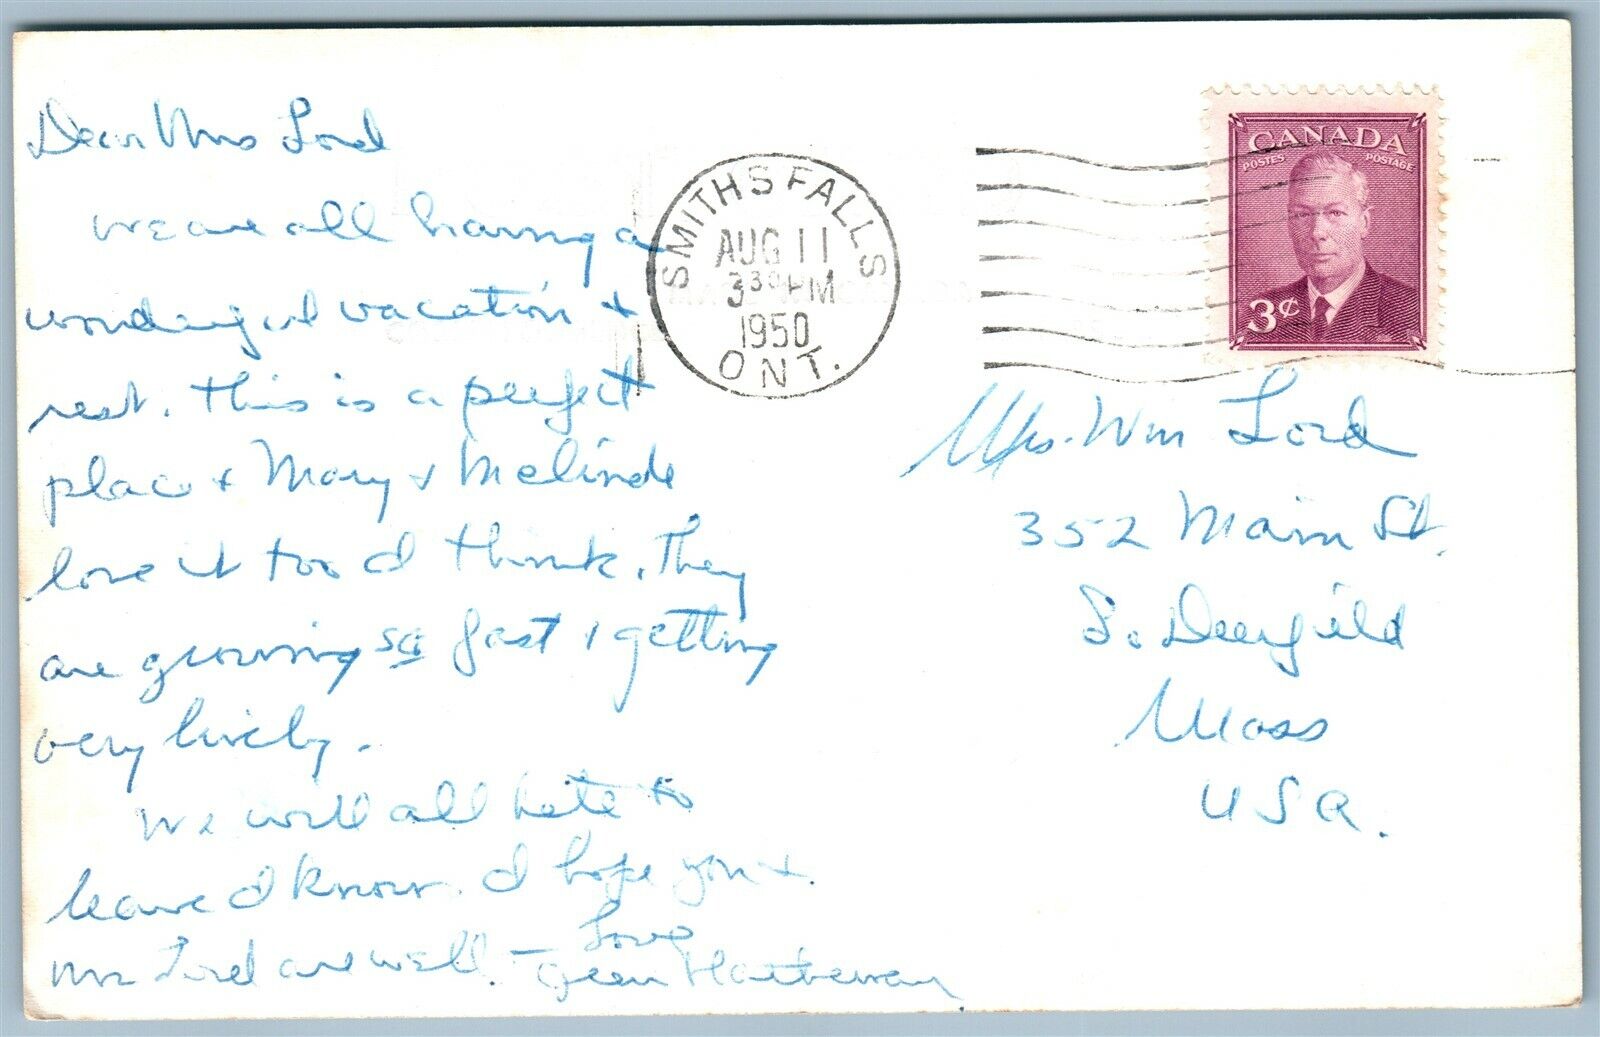 Dear Mrs Lord
We are all having a
wonderful vacation &
rest. This is a perfect
place & Mary & Melinda
love it too I think. They
are growing so fast & getting
very lively.
We will all hate to
leave I know. I hope you &
Mr Lord are well. – Love
Jean Hathaway
SMITHS FALLS
AUG 11
3 30 PM
1950
ONT.
CANADA
POSTES POSTAGE
3¢
Mrs. Wm Lord
352 Main St.
So Deerfield
Mass
USA.